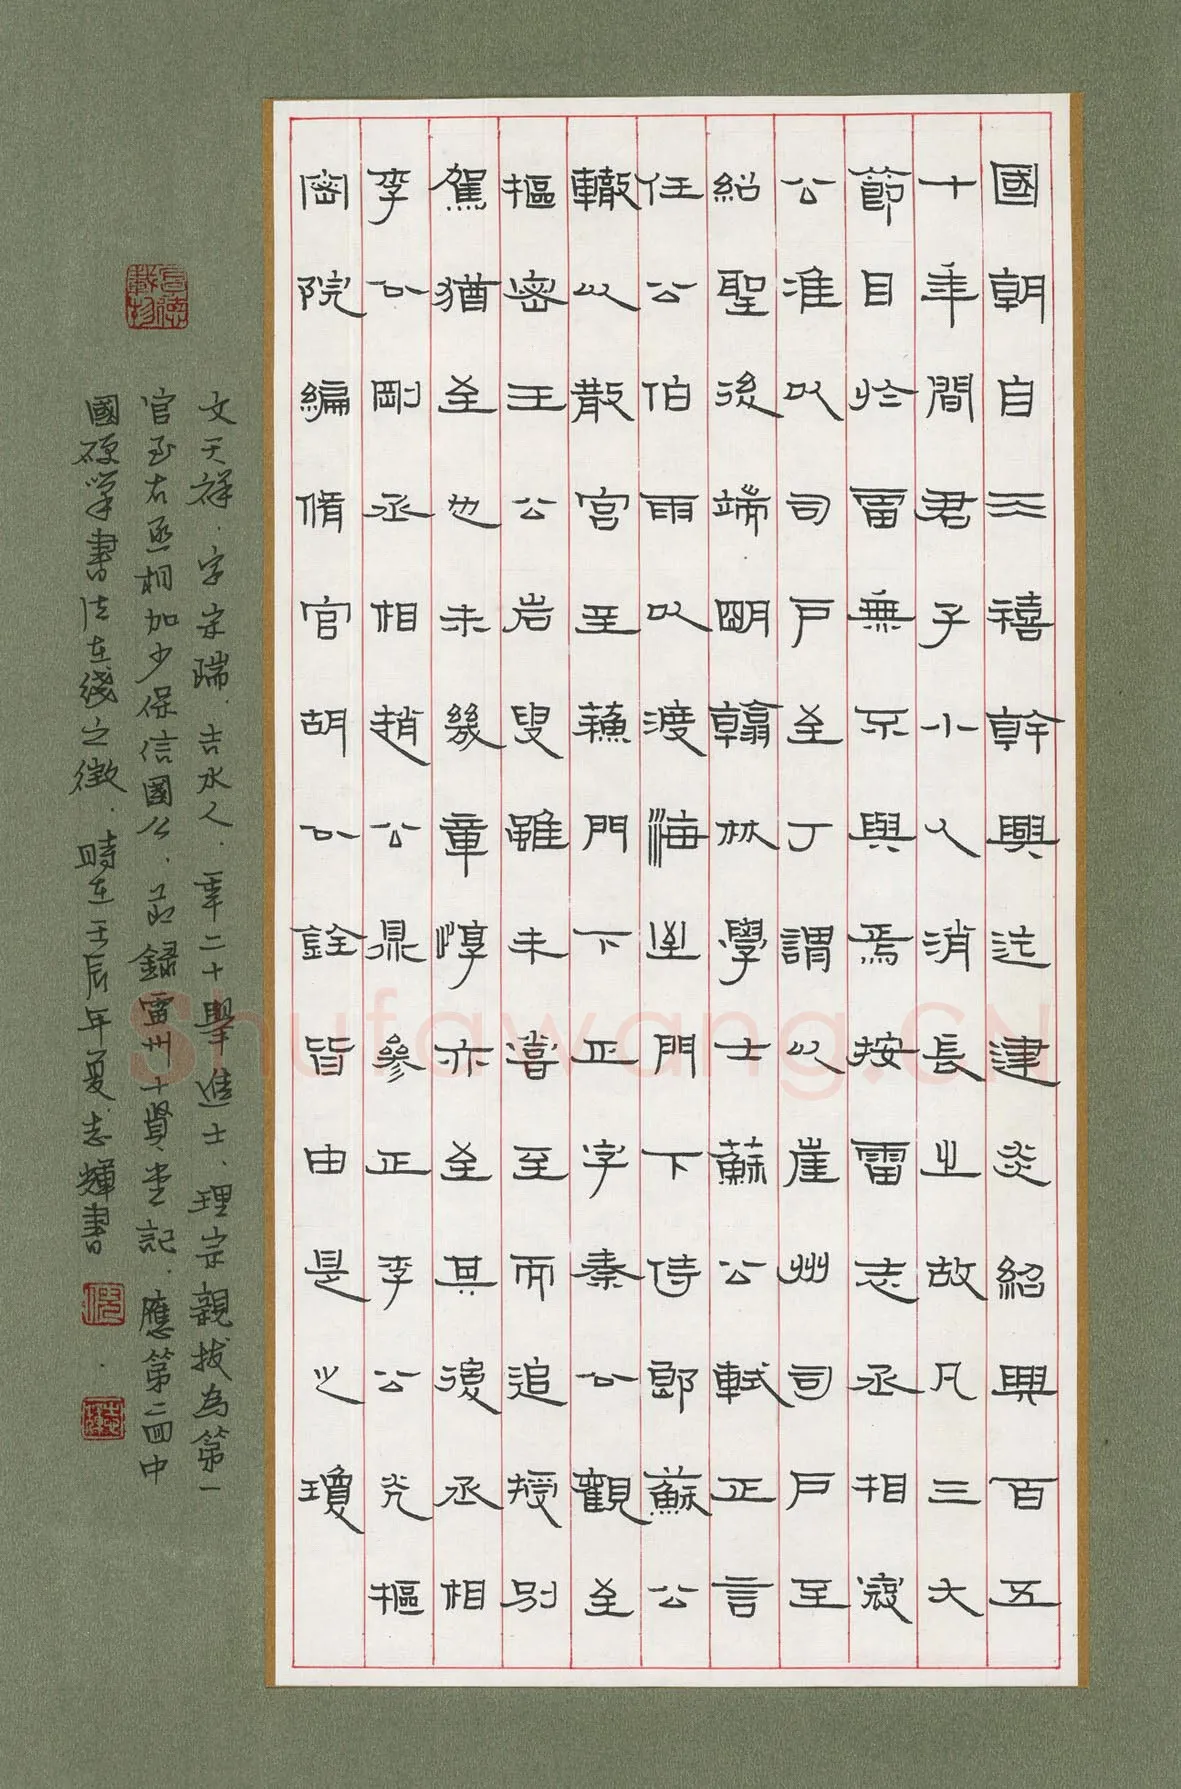 國朝自天禧幹興迄建炎紹興百五
十年間君子小人消長之故凡三大
節目於雷無不與焉按雷志丞相寇
公淮以司戶至丁謂以崖州司戶至
紹聖後端明翰林學士蘇公軾正言
任公伯雨以渡海至門下侍郎蘇公
轍以散宮至蘇門下正字秦公觀至
樞密王公岩叟雖未嘗至而追授別
駕猶至也未幾章惇亦至其後丞相
李公剛丞相趙公鼎參正李公光樞
密院編脩官胡公銓皆由是之瓊
文天祥.字宋瑞.吉水人.年二十舉進士.理宗親拔為第一
官至右丞相加少保信國公.節錄雷州十賢堂記.應第二回中
國硬筆書法在綫之徵.時在壬辰年夏志輝書
厚德載物
Shufawang.CN